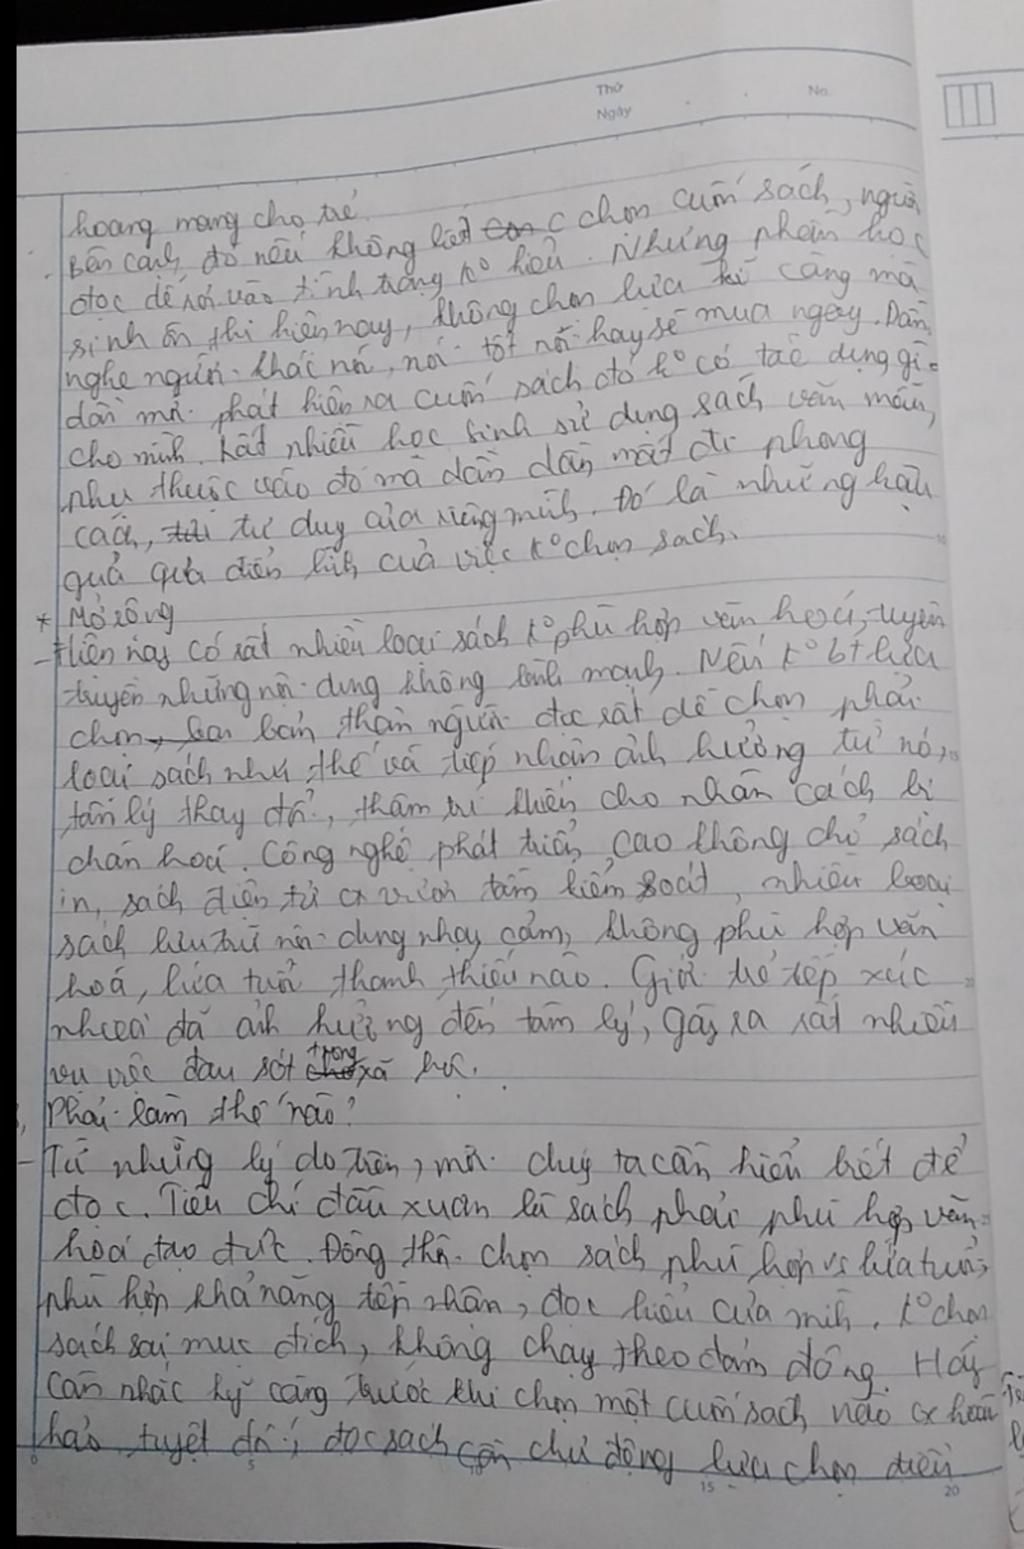 Thứ
Ngày
No.
hoang mang cho trẻ
Bên cạnh, đó nếu không biết chọn cuốn sách, người
đọc dễ rơi vào tình trạng k° hiểu. Những phần học
sinh ôn thi hiện nay, không chọn lựa kĩ càng mà
nghe người khác nói, nói tốt nói hay sẽ mua ngay. Dần
dần mới phát hiện ra cuốn sách đó k° có tác dụng gì
cho mình. Rất nhiều học sinh sử dụng sách văn mẫu,
phụ thuộc vào đó mà dần dần mất đi phong
cách, tư duy của riêng mình. Đó là những hậu
quả điển hình của việc k° chọn sách.
* Mở rộng
- Hiện nay có rất nhiều loại sách k° phù hợp văn hoá, tuyên
truyền những nội dung không lành mạnh. Nếu k° bt lựa
chọn, bản thân người đọc rất dễ chọn phải
loại sách như thế và tiếp nhận ảnh hưởng từ nó,
tâm lý thay đổi, thậm trí khiến cho nhân cách bị
chán hoá. Công nghệ phát triển cao không chỉ sách
in, sách điện tử cx vượt tầm kiểm soát, nhiều loại
sách lưu trữ nội dung nhạy cảm, không phù hợp văn
hoá, lứa tuổi thanh thiếu nào. Giới trẻ tiếp xúc
đã ảnh hưởng đến tâm lý, gây ra rất nhiều
vụ việc đau sót trong xã hội.
Phải làm thế nào?
- Từ những lý do trên, mỗi chúg ta cần hiểu biết để
đọc. Tiêu chí đầu xuan là sách phải phù hợp văn
hoá đạo đức. Đồng thời chọn sách phù hợp vs lứa tuổi,
phù hợp khả năng tiếp nhận, đọc hiểu của mình. k° chọn
sách sai mục đích, không chạy theo đám đông. Hãy
cân nhắc kỹ càng trước khi chọn một cuốn sách nào cx hoàn
hảo tuyệt đối, đọc sách cần chủ động lựa chọn điều
5
10
15
20